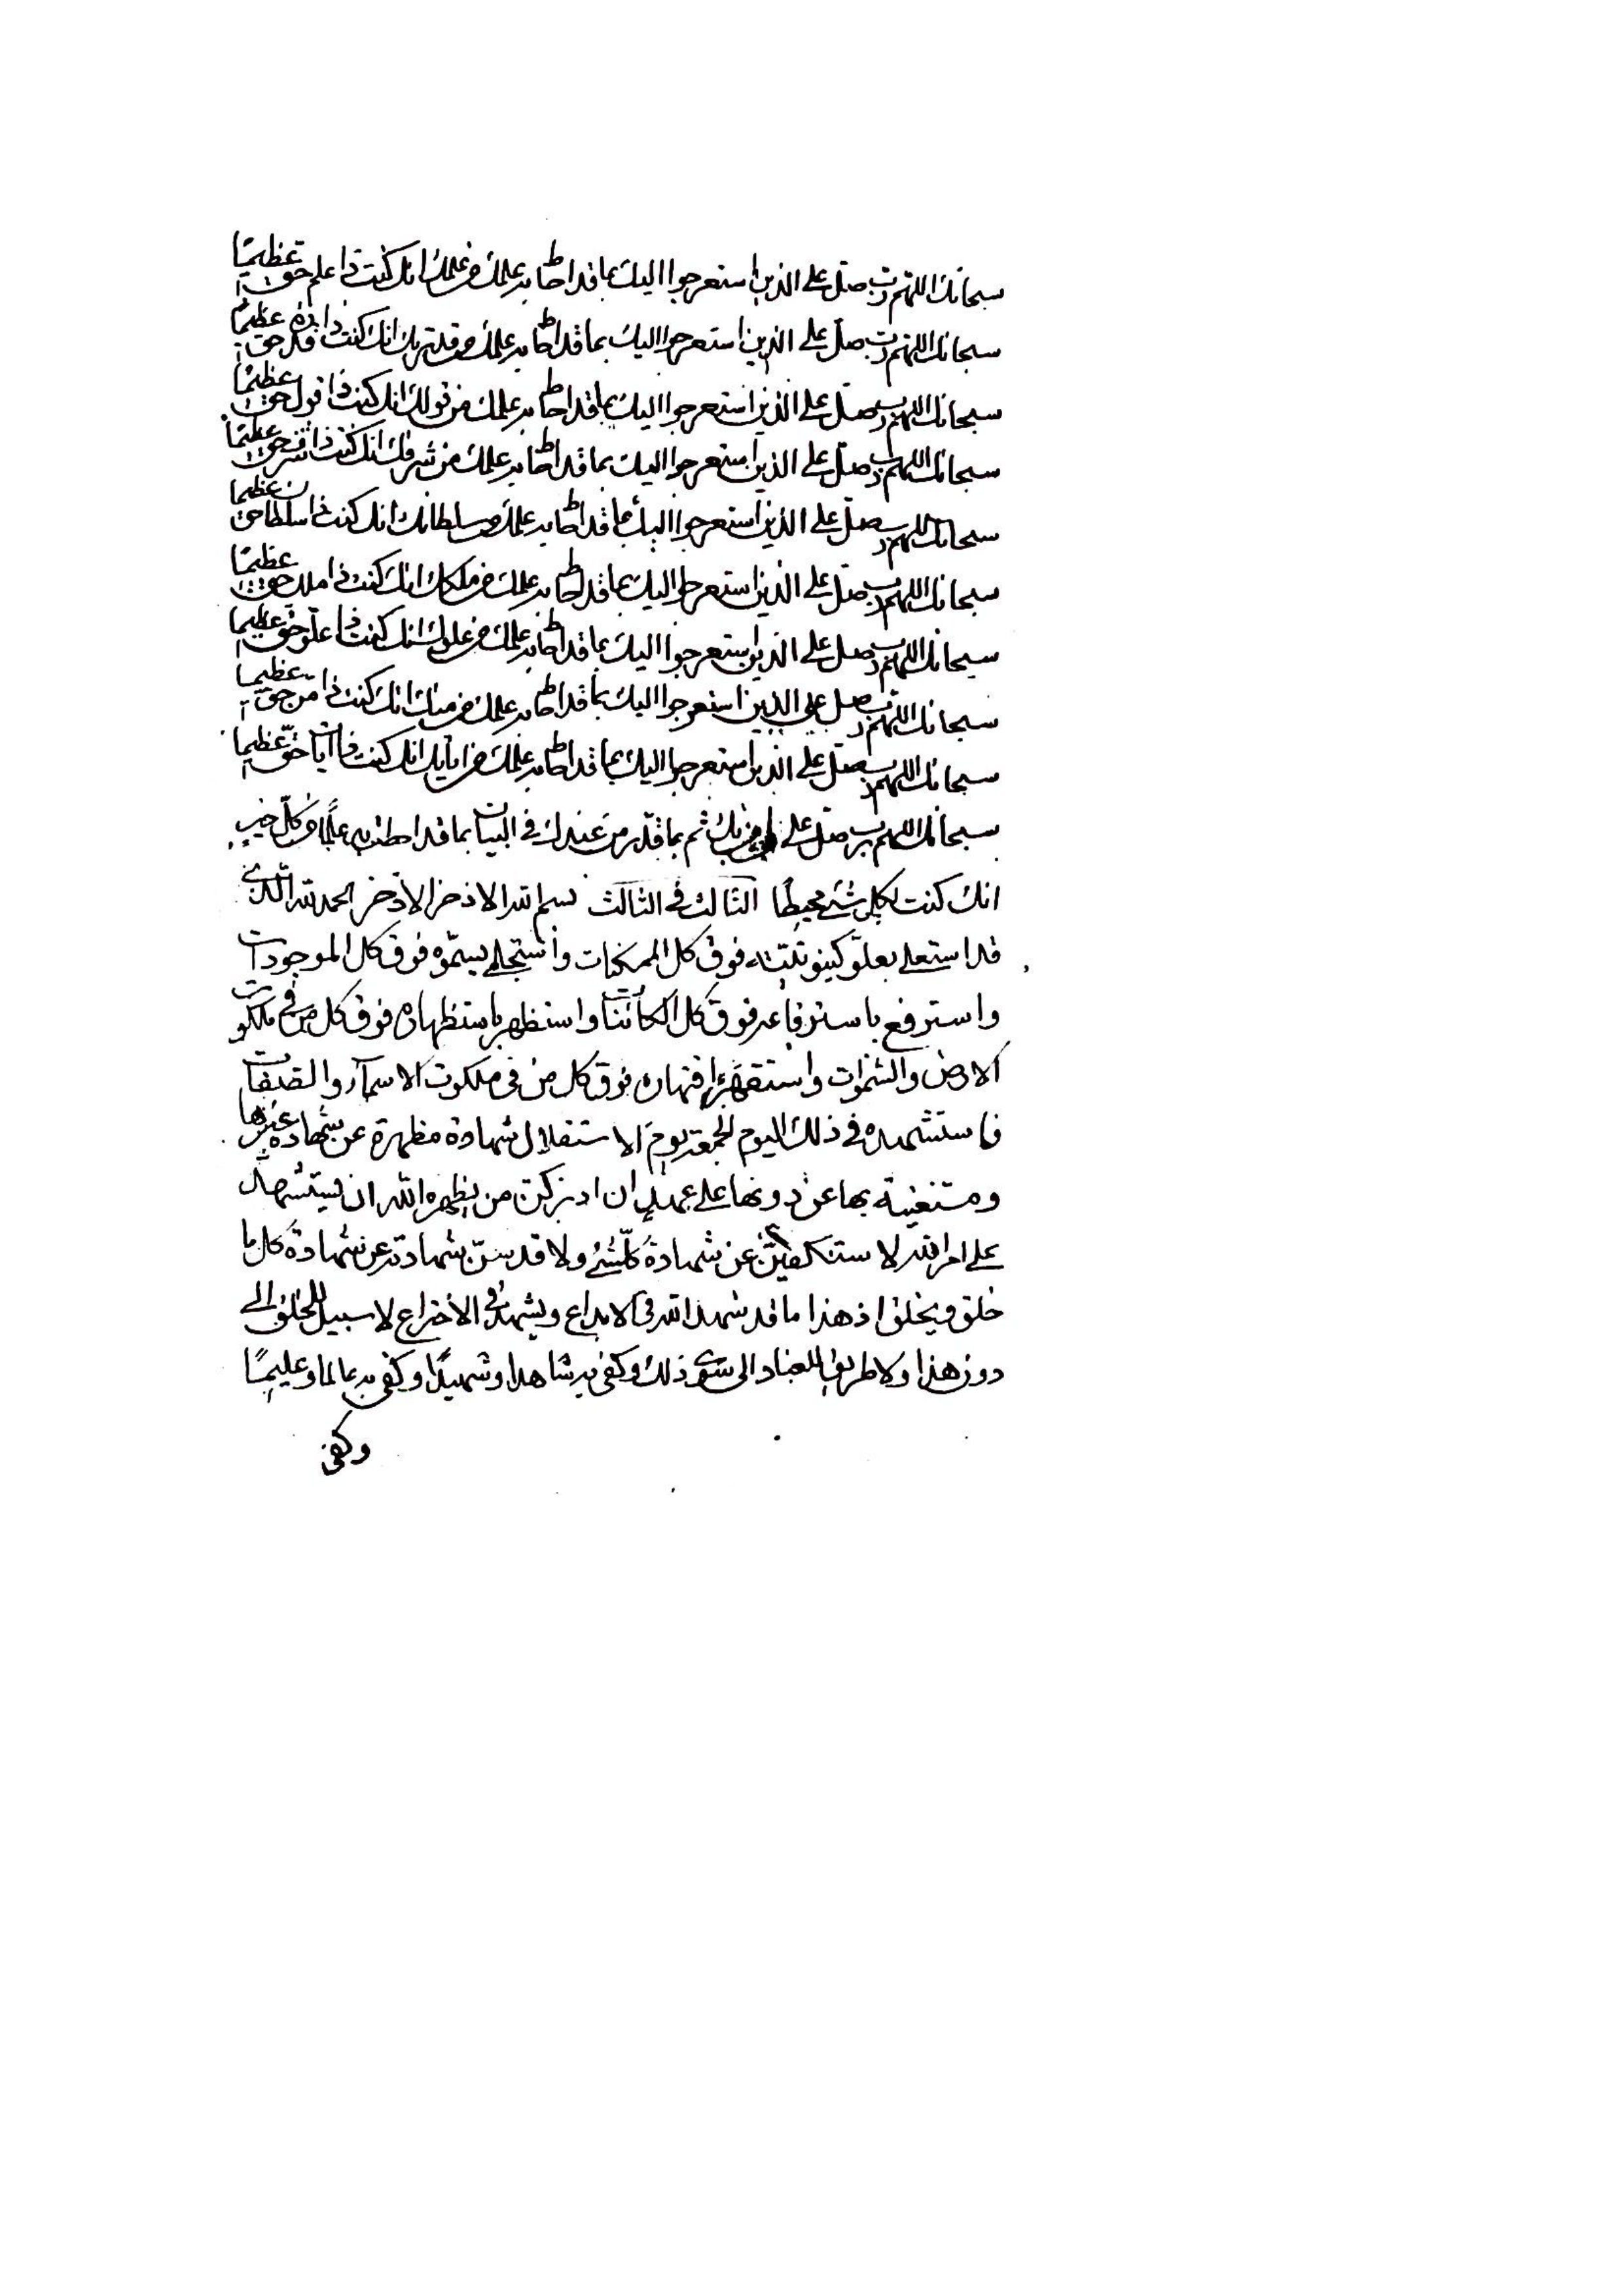 سبحانك اللهم رب صل على الذين استعرجوا اليك بما قد احاط به علمك من علمك انك كنت ذا علم حق عظيما
سبحانك اللهم رب صل على الذين استعرجوا اليك بما قد احاط به علمك من قدرتك انك كنت ذا قدرة حق عظيما
سبحانك اللهم رب صل على الذين استعرجوا اليك بما قد احاط به علمك من قولك انك كنت ذا قول حق عظيما
سبحانك اللهم رب صل على الذين استعرجوا اليك بما قد احاط به علمك من شرفك انك كنت ذا شرف حق عظيما
سبحانك اللهم رب صل على الذين استعرجوا اليك بما قد احاط به علمك من سلطانك انك كنت ذا سلطان حق عظيما
سبحانك اللهم رب صل على الذين استعرجوا اليك بما قد احاط به علمك من ملكك انك كنت ذا ملك حق عظيما
سبحانك اللهم رب صل على الذين استعرجوا اليك بما قد احاط به علمك من علوك انك كنت ذا علو حق عظيما
سبحانك اللهم رب صل على الذين استعرجوا اليك بما قد احاط به علمك من منك انك كنت ذا من حق عظيما
سبحانك اللهم رب صل على الذين استعرجوا اليك بما قد احاط به علمك من اياتك انك كنت ذا آيات حق عظيما
سبحانك اللهم رب صل على ثم بما قدر من عندك في البيان بما قد احطت به علما من كل خير
انك كنت بكل شئ محيطا الثالث في الثالث بسم الله الاذخر الاذخر الحمد لله الذي
قد استعلى بعلو كينونيته فوق كل الممكنات واستجلى بسموه فوق كل الموجودات
واسترفع باسترفاعه فوق كل الكائنات واستظهر باستظهاره فوق كل من في ملكوت
الارض والسموات واستقهر باقتهاره فوق كل من في ملكوت الاسماء والصفات
فاستشهده في ذلك اليوم الجمعة يوم الاستقلال شهادة مظهرة عن شهادة غيرها
ومستغنية بها عن دونها على ان ادركن من يظهره الله ان يستشهد
على امر الله لاستكفين عن شهادة كلشئ ولاقدسن بشهادته عن شهادة كل ما
خلق ويخلق اذ هذا ما قد شهد الله في الابداع ويشهد في الاختراع لا سبيل للخلق الى
دون هذا ولا طريق للعباد الى سوى ذلك وكفى به شاهدا وشهيدا وكفى به عالما وعليما
وكفى